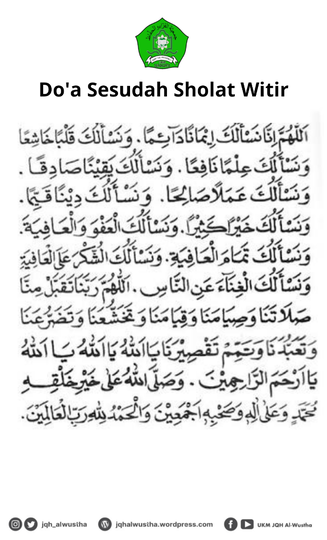 Do'a Sesudah Sholat Witir
اَللّٰهُمَّ اِنَّا نَسْأَلُكَ اِيْمَانًا دَآئِمًا. وَنَسْأَلُكَ قَلْبًا خَاشِعًا
وَنَسْأَلُكَ عِلْمًا نَافِعًا. وَنَسْأَلُكَ يَقِيْنًا صَادِقًا.
وَنَسْأَلُكَ عَمَلًا صَالِحًا. وَنَسْأَلُكَ دِيْنًا قَيِّمًا.
وَنَسْأَلُكَ خَيْرًا كَثِيْرًا. وَنَسْأَلُكَ الْعَفْوَ وَالْعَافِيَةَ.
وَنَسْأَلُكَ تَمَامَ الْعَافِيَةِ. وَنَسْأَلُكَ الشُّكْرَ عَلَى الْعَافِيَةِ
وَنَسْأَلُكَ الْغِنَاءَ عَنِ النَّاسِ. اَللّٰهُمَّ رَبَّنَا تَقَبَّلْ مِنَّا
صَلَاتَنَا وَصِيَامَنَا وَقِيَامَنَا وَتَخَشُّعَنَا وَتَضَرُّعَنَا
وَتَعَبُّدَنَا وَتَمِّمْ تَقْصِيْرَنَا يَااَللهُ يَااَللهُ يَا اَللهُ
يَااَرْحَمَ الرَّاحِمِيْنَ. وَصَلَّى اللهُ عَلَى خَيْرِ خَلْقِهِ
مُحَمَّدٍ وَعَلَى اٰلِهِ وَصَحْبِهِ اَجْمَعِيْنَ وَالْحَمْدُ لِلّٰهِ رَبِّ الْعَالَمِيْنَ.
jqh_alwustha jqhalwustha.wordpress.com UKM JQH Al-Wustha